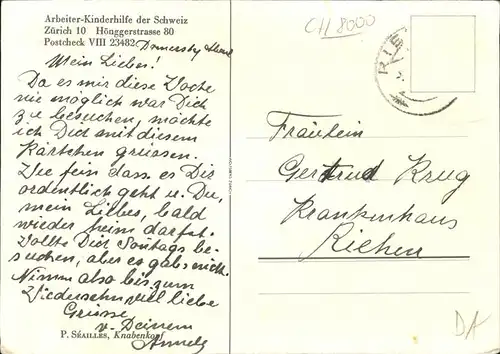 Arbeiter-Kinderhilfe der Schweiz
Zürich 10 Hönggerstrasse 80
Postcheck VIII 23482
Donnerstag Abend
Mein Liebes!
Da es mir diese Woche
nie möglich war Dich
zu besuchen, möchte
ich Dich mit diesem
Kärtchen grüssen.
Wie fein dass es Dir
ordentlich geht u. Du,
mein Liebes, bald
wieder heim darfst.
Wollte Dich Sontags be-
suchen, aber es gab nicht.
Nimm also bis zum
Wiedersehn viel liebe
Grüsse
v. Deinem
P. SÉAILLES, Knabenkopf
CH 8000
RIE
Fräulein
Gertrud Krug
Krankenhaus
Riehen
DA